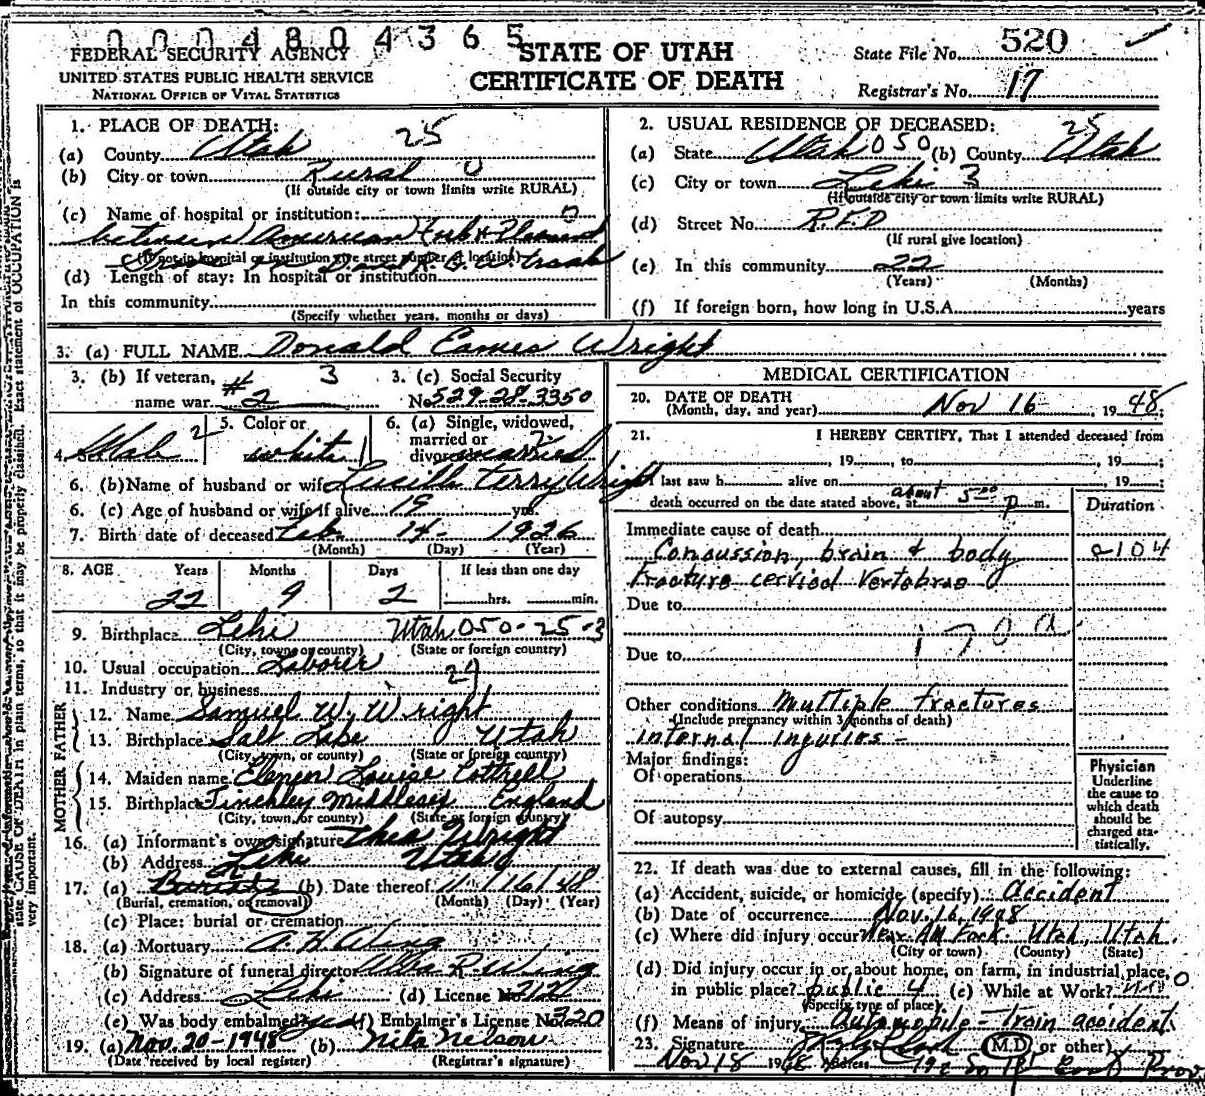 0004804365
FEDERAL SECURITY AGENCY
UNITED STATES PUBLIC HEALTH SERVICE
NATIONAL OFFICE OF VITAL STATISTICS
STATE OF UTAH
CERTIFICATE OF DEATH
State File No. 520
Registrar's No. 17
1. PLACE OF DEATH: 25
(a) County Utah
(b) City or town Rural 0
(If outside city or town limits write RURAL)
(c) Name of hospital or institution: 0
between American Fork & Pleasant
(If not in hospital or institution give street number or location)
Grove on D. & R. G. W.
(d) Length of stay: In hospital or institution
In this community
(Specify whether years, months or days)
2. USUAL RESIDENCE OF DECEASED: 25
(a) State Utah 050 (b) County Utah
(c) City or town Lehi 3
(If outside city or town limits write RURAL)
(d) Street No. R.F.D
(If rural give location)
(e) In this community 22
(Years) (Months)
(f) If foreign born, how long in U.S.A. years
3. (a) FULL NAME Donald Eames Wright
3. (b) If veteran, name war # 2 3
3. (c) Social Security No. 529-28-3350
4. Male 2
5. Color or race white
6. (a) Single, widowed, married or divorced married 2
6. (b) Name of husband or wife Lucille Terry Wright
6. (c) Age of husband or wife if alive 19 yrs.
7. Birth date of deceased Feb. 14- 1926
(Month) (Day) (Year)
8. AGE Years Months Days If less than one day
22 9 2 hrs. min.
9. Birthplace Lehi Utah 050-25-3
(City, town, or county) (State or foreign country)
10. Usual occupation Laborer
11. Industry or business
MOTHER FATHER
12. Name Samuel W. Wright
13. Birthplace Salt Lake Utah
(City, town, or county) (State or foreign country)
14. Maiden name Louise Cottrell
15. Birthplace Finchley Middlesex England
(City, town, or county) (State or foreign country)
16. (a) Informant's own signature Wright
(b) Address Lehi Utah
17. (a) Burial (b) Date thereof 11/16/48
(Burial, cremation, or removal) (Month) (Day) (Year)
(c) Place: burial or cremation
18. (a) Mortuary A. H. Wing
(b) Signature of funeral director R. Wing
(c) Address Lehi (d) License No. 212
(e) Was body embalmed? yes (f) Embalmer's License No. 320
19. (a) Nov. 20-1948 (b) Nila Nelson
(Date received by local register) (Registrar's signature)
MEDICAL CERTIFICATION
20. DATE OF DEATH
(Month, day, and year) Nov 16 , 1948
21. I HEREBY CERTIFY, That I attended deceased from
, 19 , to , 19 ;
I last saw h alive on , 19 ;
death occurred on the date stated above, at about 5:00 p m.
Duration
Immediate cause of death
Concussion, brain & body
fracture cervical Vertebrae
2104
Due to
170a
Due to
Other conditions Multiple fractures
(Include pregnancy within 3 months of death)
internal injuries -
Major findings:
Of operations
Of autopsy
Physician
Underline
the cause to
which death
should be
charged sta-
tistically.
22. If death was due to external causes, fill in the following:
(a) Accident, suicide, or homicide (specify) Accident
(b) Date of occurrence Nov. 16, 1948
(c) Where did injury occur Near Am Fork Utah, Utah.
(City or town) (County) (State)
(d) Did injury occur in or about home, on farm, in industrial place,
in public place? public 4 (e) While at Work? no 0
(Specify type of place)
(f) Means of injury Automobile - Train accident
23. Signature (M.D. or other)
Nov 18 1948 Address Prov
state CAUSE OF DEATH in plain terms, so that it may be properly classified. Exact statement of OCCUPATION is
very important.